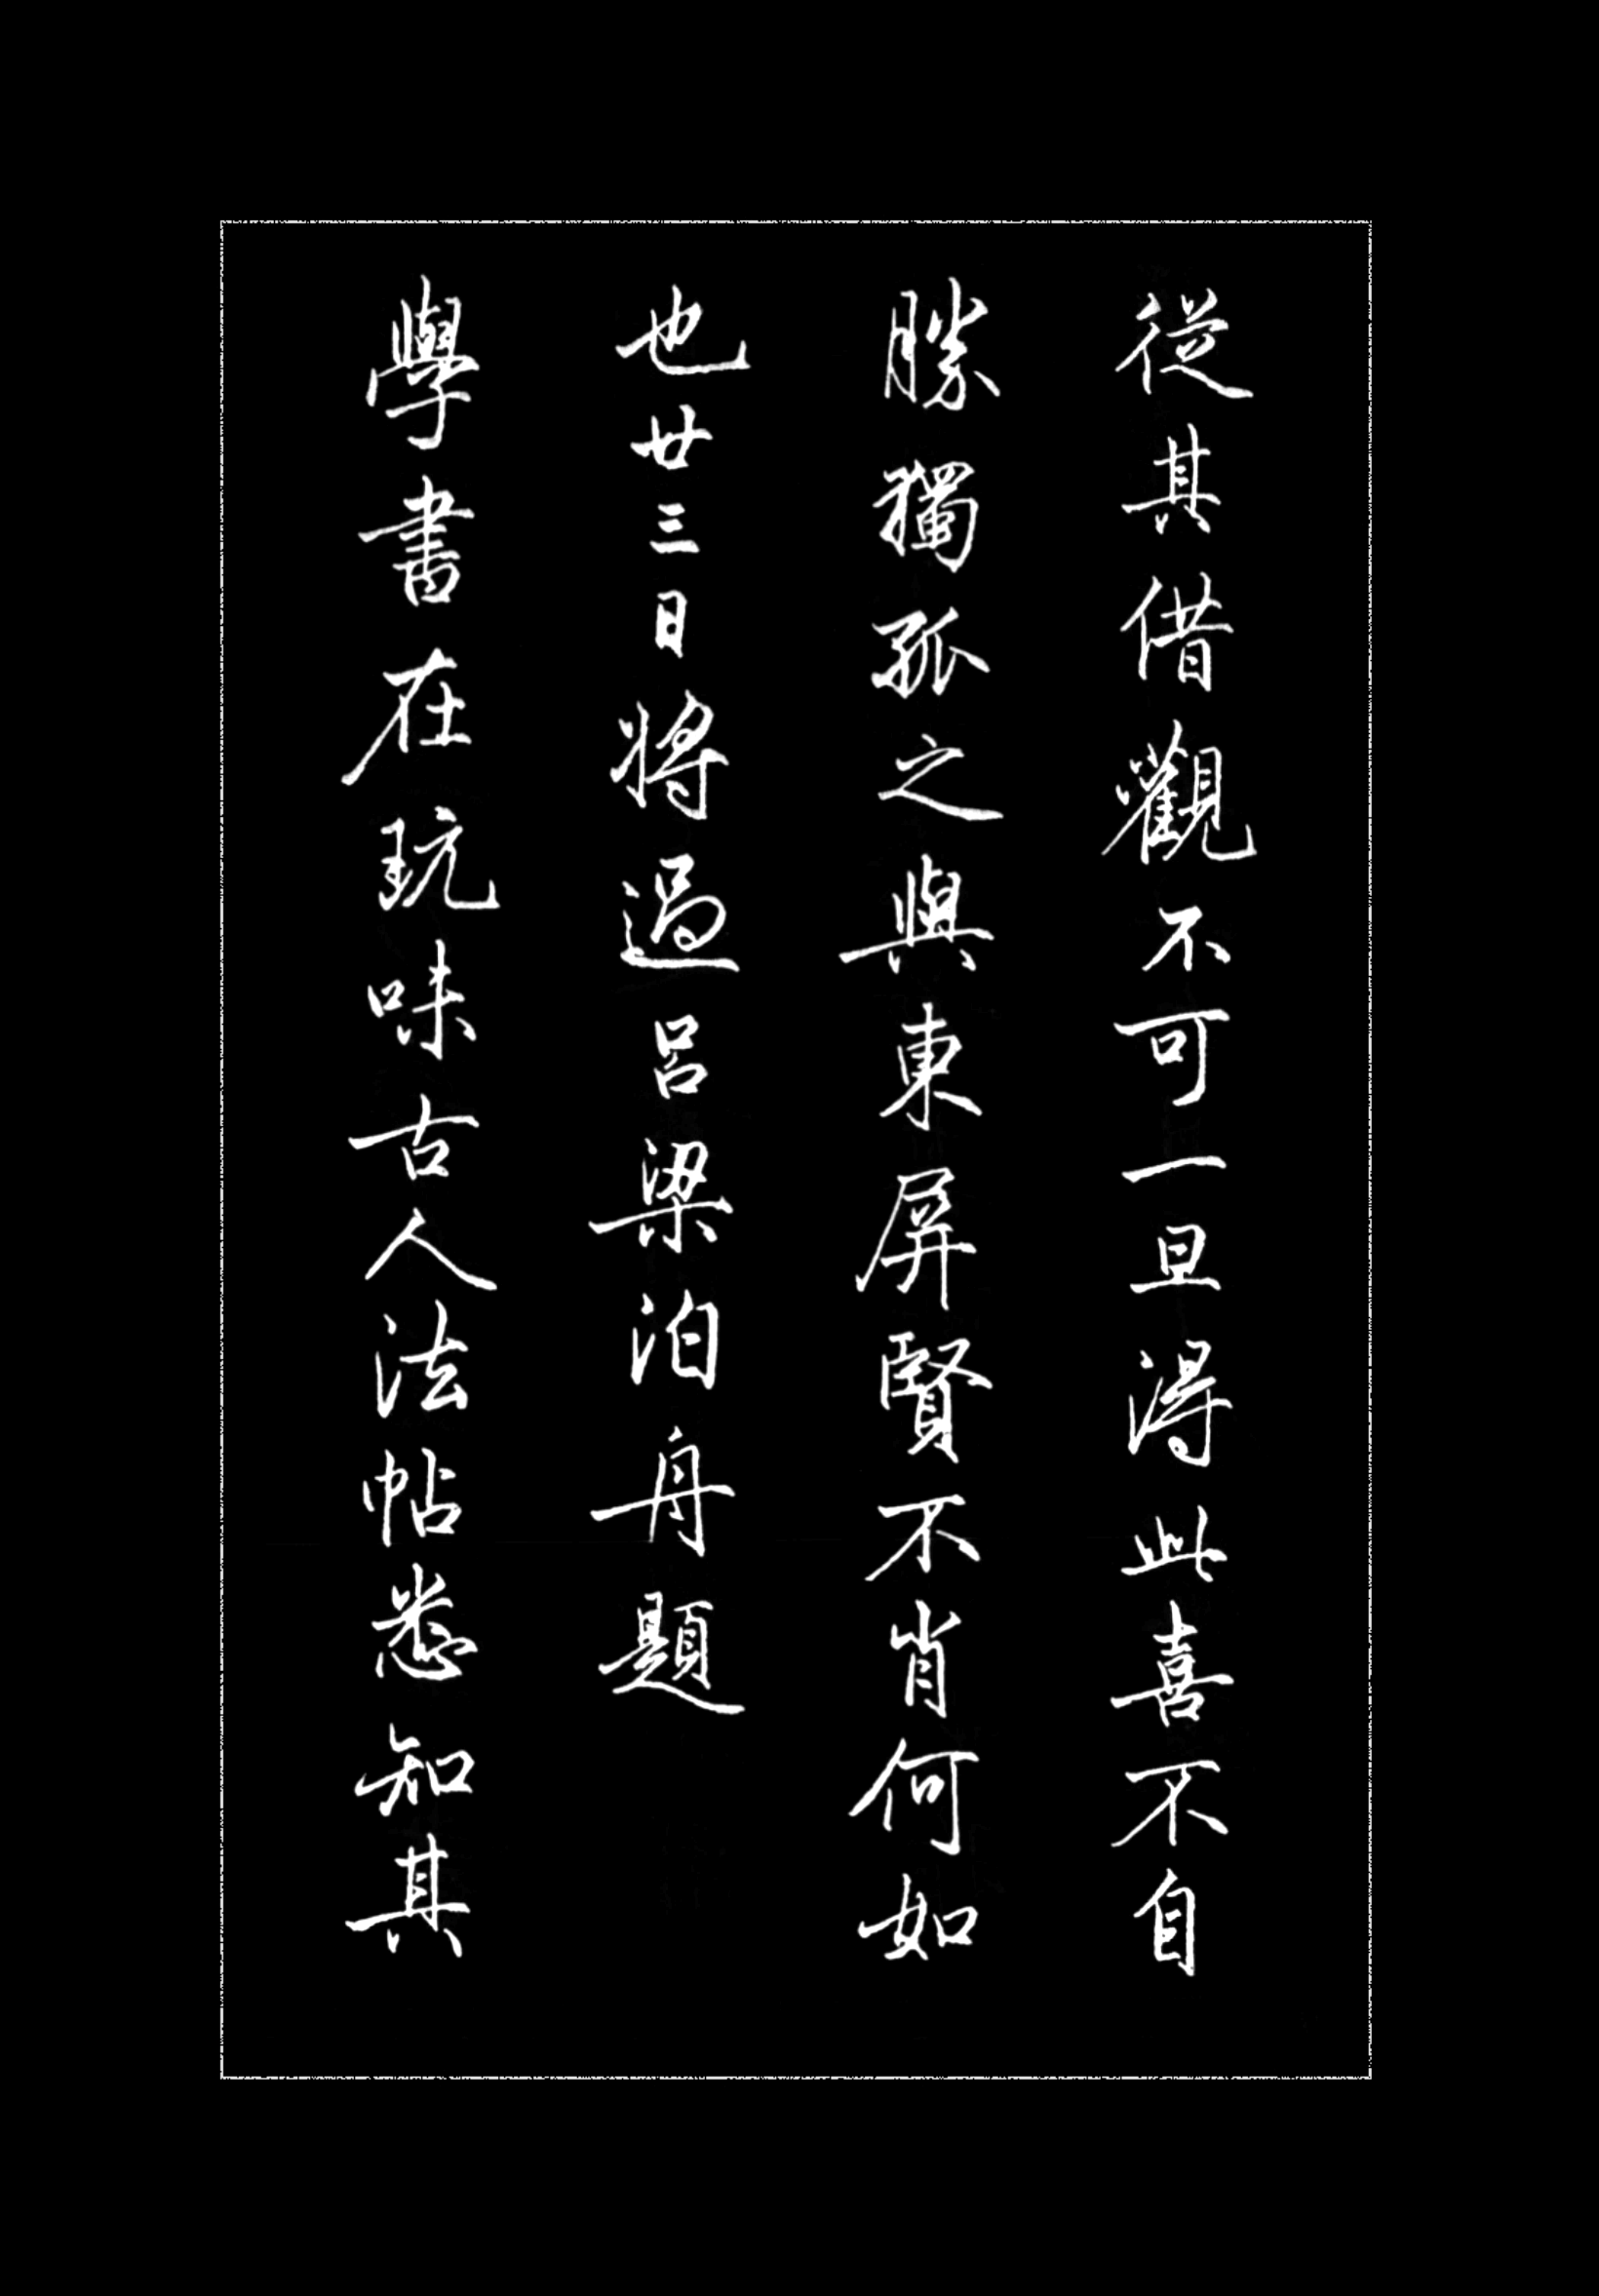 從其借觀不可一旦得此喜不自
勝獨孤之與東屏賢不肖何如
也廿三日將過呂梁泊舟題
學書在玩味古人法帖悉知其